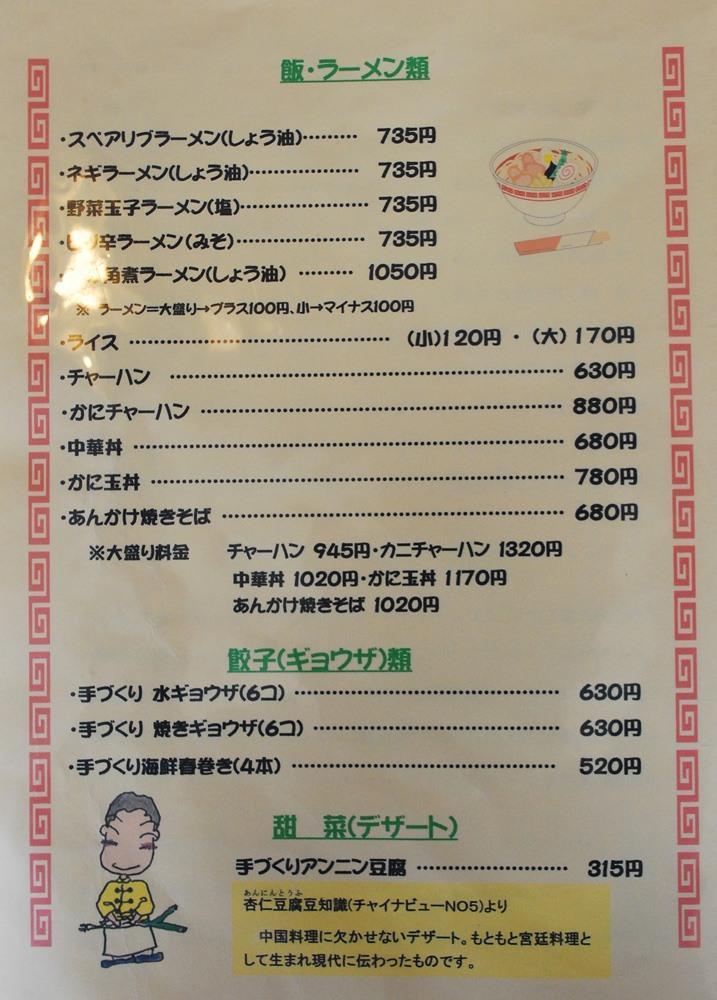 飯・ラーメン類
・スペアリブラーメン(しょう油)……… 735円
・ネギラーメン(しょう油)……………… 735円
・野菜玉子ラーメン(塩)………………… 735円
・ピリ辛ラーメン(みそ)………………… 735円
角煮ラーメン(しょう油) ……… 1050円
※ ラーメン=大盛り→プラス100円、小→マイナス100円
・ライス …………………………………… (小)120円 ・ (大) 170円
・チャーハン ……………………………………………………… 630円
・かにチャーハン ………………………………………………… 880円
・中華丼 …………………………………………………………… 680円
・かに玉丼 ………………………………………………………… 780円
・あんかけ焼きそば ……………………………………………… 680円
※大盛り料金 チャーハン 945円・カニチャーハン 1320円
中華丼 1020円・かに玉丼 1170円
あんかけ焼きそば 1020円
餃子(ギョウザ)類
・手づくり 水ギョウザ(6コ) …………………………………… 630円
・手づくり 焼きギョウザ(6コ) ………………………………… 630円
・手づくり海鮮春巻き(4本) …………………………………… 520円
甜 菜(デザート)
手づくりアンニン豆腐 …………………… 315円
あんにんとうふ
杏仁豆腐豆知識(チャイナビューNO5)より
中国料理に欠かせないデザート。もともと宮廷料理と
して生まれ現代に伝わったものです。